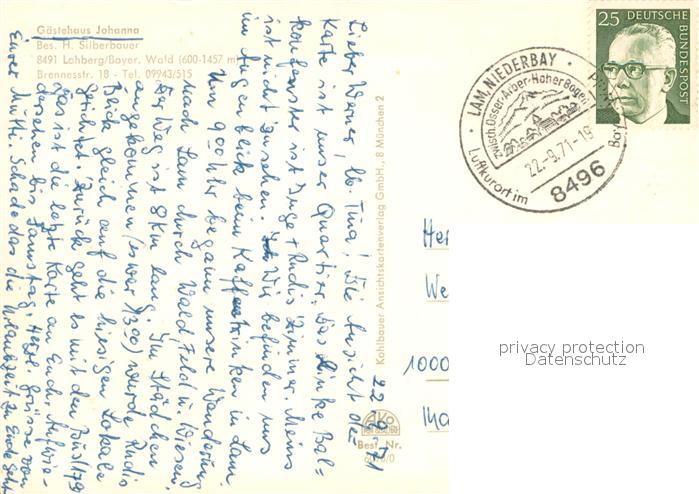 Gästehaus Johanna
Bes. H. Silberbauer
8491 Lohberg/Bayer. Wald (600-1457 m)
Brennesstr. 18 - Tel. 09943/515
22.9.71
Lieber Werner, lb. Tina! Die Ansicht der
Karte ist unser Quartier. Das linke Bal-
konfenster ist Inge + Rudis Zimmer. Meins
ist nicht zu sehen. Wir befinden uns
im Augenblick beim Kaffeetrinken in Lam.
Um 900 Uhr begann unsere Wanderung
nach Lam durch Wald, Feld u. Wiesen.
Der Weg ist 8 km lang. Im Städchen
angekommen (es war 1300) wurde Rudis
Blick gleich auf die hiesigen Lokale
gerichtet. Zurück geht es mit den Bus (179
Das ist die letzte Karte an Euch. Aufwie-
dersehen bis Samstag. Herzl. Grüsse von
Eurer Mutti. Schade das die Urlaubszeit zu Ende geht
Kohlbauer Ansichtskartenverlag GmbH., 8 München 2
AKo
Best. Nr.
25 DEUTSCHE
BUNDESPOST
LAM, NIEDERBAY.
zwisch. Osser-Arber-Hoher Bogen
22.-9.71-19
Luftkurort im
8496
Her
We
1000
privacy protection
Datenschutz